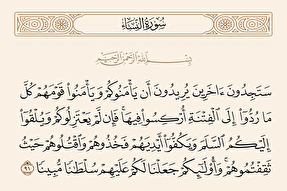 سُورَةُ النِّسَاء
بِسْمِ اللَّهِ الرَّحْمَٰنِ الرَّحِيمِ
سَتَجِدُونَ ءَاخَرِينَ يُرِيدُونَ أَن يَأْمَنُوكُمْ وَيَأْمَنُوا۟ قَوْمَهُمْ كُلَّ
مَا رُدُّوٓا۟ إِلَى ٱلْفِتْنَةِ أُرْكِسُوا۟ فِيهَا ۚ فَإِن لَّمْ يَعْتَزِلُوكُمْ وَيُلْقُوٓا۟
إِلَيْكُمُ ٱلسَّلَمَ وَيَكُفُّوٓا۟ أَيْدِيَهُمْ فَخُذُوهُمْ وَٱقْتُلُوهُمْ حَيْثُ
ثَقِفْتُمُوهُمْ ۚ وَأُو۟لَٰٓئِكُمْ جَعَلْنَا لَكُمْ عَلَيْهِمْ سُلْطَٰنًا مُّبِينًا ٩١